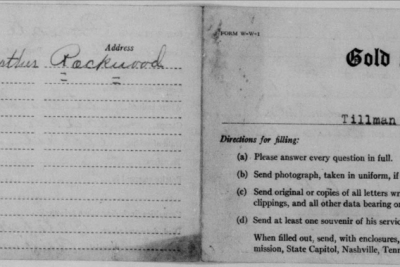 Address
Rockwood
FORM W-W-1
Gold
Tillman
Directions for filling:
(a) Please answer every question in full.
(b) Send photograph, taken in uniform, if
(c) Send original or copies of all letters wr
clippings, and all other data bearing or
(d) Send at least one souvenir of his servic
When filled out, send, with enclosures,
mission, State Capitol, Nashville, Tenn